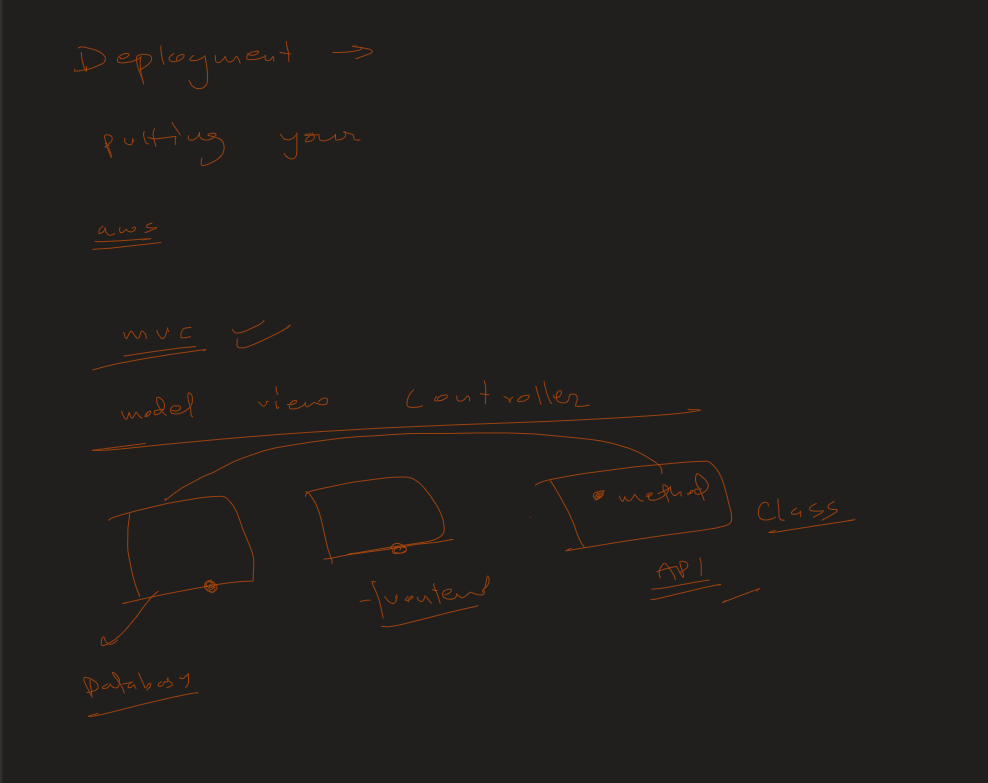 Deployment →
putting your
aws
mvc
model view Controller
method
Class
API
frontend
Database